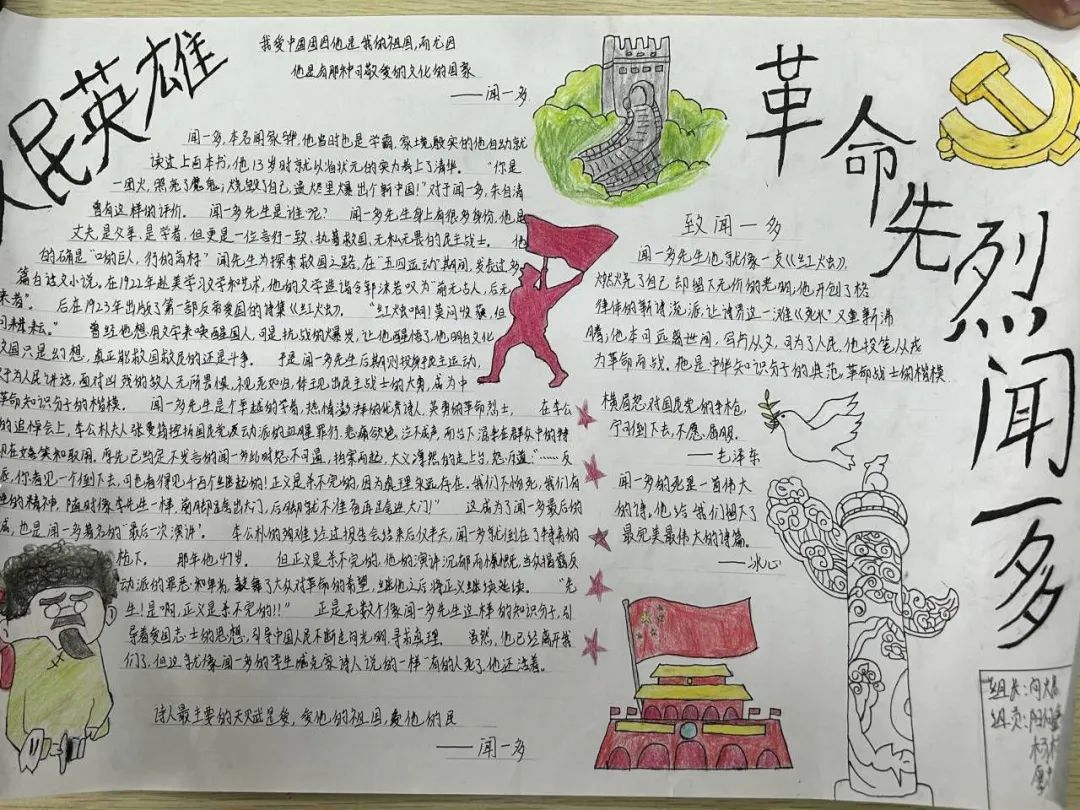 人民英雄
我爱中国固因他是我的祖国,而尤因
他是有那种可敬爱的文化的国家
——闻一多
闻一多,本名闻家骅,他当时也是学霸,家境殷实的他自幼就
读过上百本书,他13岁时就以省状元的实力考上了清华。 “你是
一团火,照亮了魔鬼;烧毁了自己,遗烬里爆出个新中国!”对于闻一多,朱自清
曾有这样的评价。 闻一多先生是谁呢? 闻一多先生身上有很多身份,他是
丈夫,是父亲,是学者,但更是一位言行一致,执着救国,无私无畏的民主战士。 他
的的确是“口的巨人,行的高标”闻先生为探索救国之路,在“五四运动”期间,发表过多
篇白话文小说,在1922年赴美学习文学和艺术,他的文学造诣令郭沫若叹为“前无古人,后无
来者”。 后在1923年出版了第一部反帝爱国的诗集《红烛》, “红烛啊!莫问收获,但
问耕耘。” 曾经他想用文字来唤醒国人,可是抗战的爆发,让他醒悟了,他明白文化
救国只是幻想,真正能救国救民的还是斗争。 于是闻一多先生后期则投身民主运动,
只为人民讲话,面对凶残的敌人无所畏惧,视死如归,体现出民主战士的大勇,成为中
革命知识分子的楷模。 闻一多先生是个卓越的学者,热情澎湃的优秀诗人,英勇的革命烈士, 在李公
的追悼会上,李公朴夫人张曼筠控诉国民党反动派的血腥罪行,悲痛欲绝,泣不成声,而台下混杂在群众中的特
却在嬉笑和取闹,原先已约定不发言的闻一多此时怒不可遏,拍案而起,大义凛然的走上台,怒斥道:“……反
派,你看见一个倒下去,可也看得见千百个继起的!正义是杀不完的,因为真理永远存在,我们不怕死,我们有
牲的精神,随时像李先生一样,前脚踏出大门,后脚就不准备再踏进大门!” 这成为了闻一多最后的
,也是闻一多著名的“最后一次演讲”。 李公朴的殉难经过报告会结束后仅半天,闻一多就倒在了特务的
枪下, 那年他47岁。 但正义是杀不完的,他的演讲沉郁而慷慨,当众揭露反
动派的罪恶和卑劣,鼓舞了大众对革命的希望,继他之后将正义继续延续。 “先
生!是啊,正义是杀不完的!!” 正是无数个像闻一多先生这样的知识分子,引
导着爱国志士的思想,引导中国人民不断走向光明,寻求真理 虽然,他已经离开我
们了,但这就像闻一多的学生臧克家诗人说的一样“有的人死了,他还活着。
诗人最主要的天赋是爱,爱他的祖国,爱他的民
——闻一多
革命先烈闻一多
致闻一多
闻一多先生他就像一支《红烛》,
燃烧了自己却留下无价的光明,他开创了格
律体的新诗流派,让诗界这一滩《死水》又重新沸
腾;他本可远离世间,写尚从文,可为了人民,他投笔从戎
为革命而战。他是中华知识分子的典范,革命战士的楷模
横眉怒对国民党的手枪,
宁可倒下去,不愿屈服。
——毛泽东
闻一多的死是一首伟大
的诗,他给我们留下了
最完美最伟大的诗篇。
——冰心
组长:向
组员:阳
杨